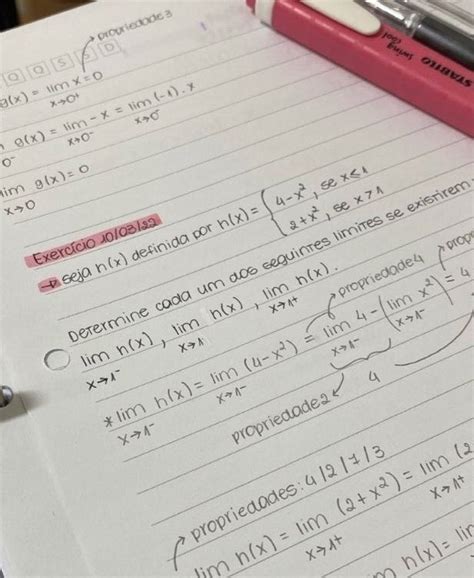 propriedade 3
Q Q S S D
g(x) = lim x = 0
x→0⁺
g(x) = lim -x = lim (-1) . x
0⁻ x→0⁻ x→0⁻
lim g(x) = 0
x→0
STABILO
swing cool
Exercício 10/03/22
→ seja h(x) definida por h(x) = { 4-x², se x≤1
2+x², se x>1
Determine cada um dos seguintes limites se existirem:
lim h(x), lim h(x), lim h(x).
x→1⁻ x→1 x→1⁺
propriedade 4
* lim h(x) = lim (4-x²) = lim 4 - (lim x²) = 4
x→1⁻ x→1⁻ x→1⁻ x→1⁻
propriedade 2 4
propriedades: 4/2/1/3
lim h(x) = lim (2+x²) = lim (2
x→1⁺ x→1⁺
h(x) = lim